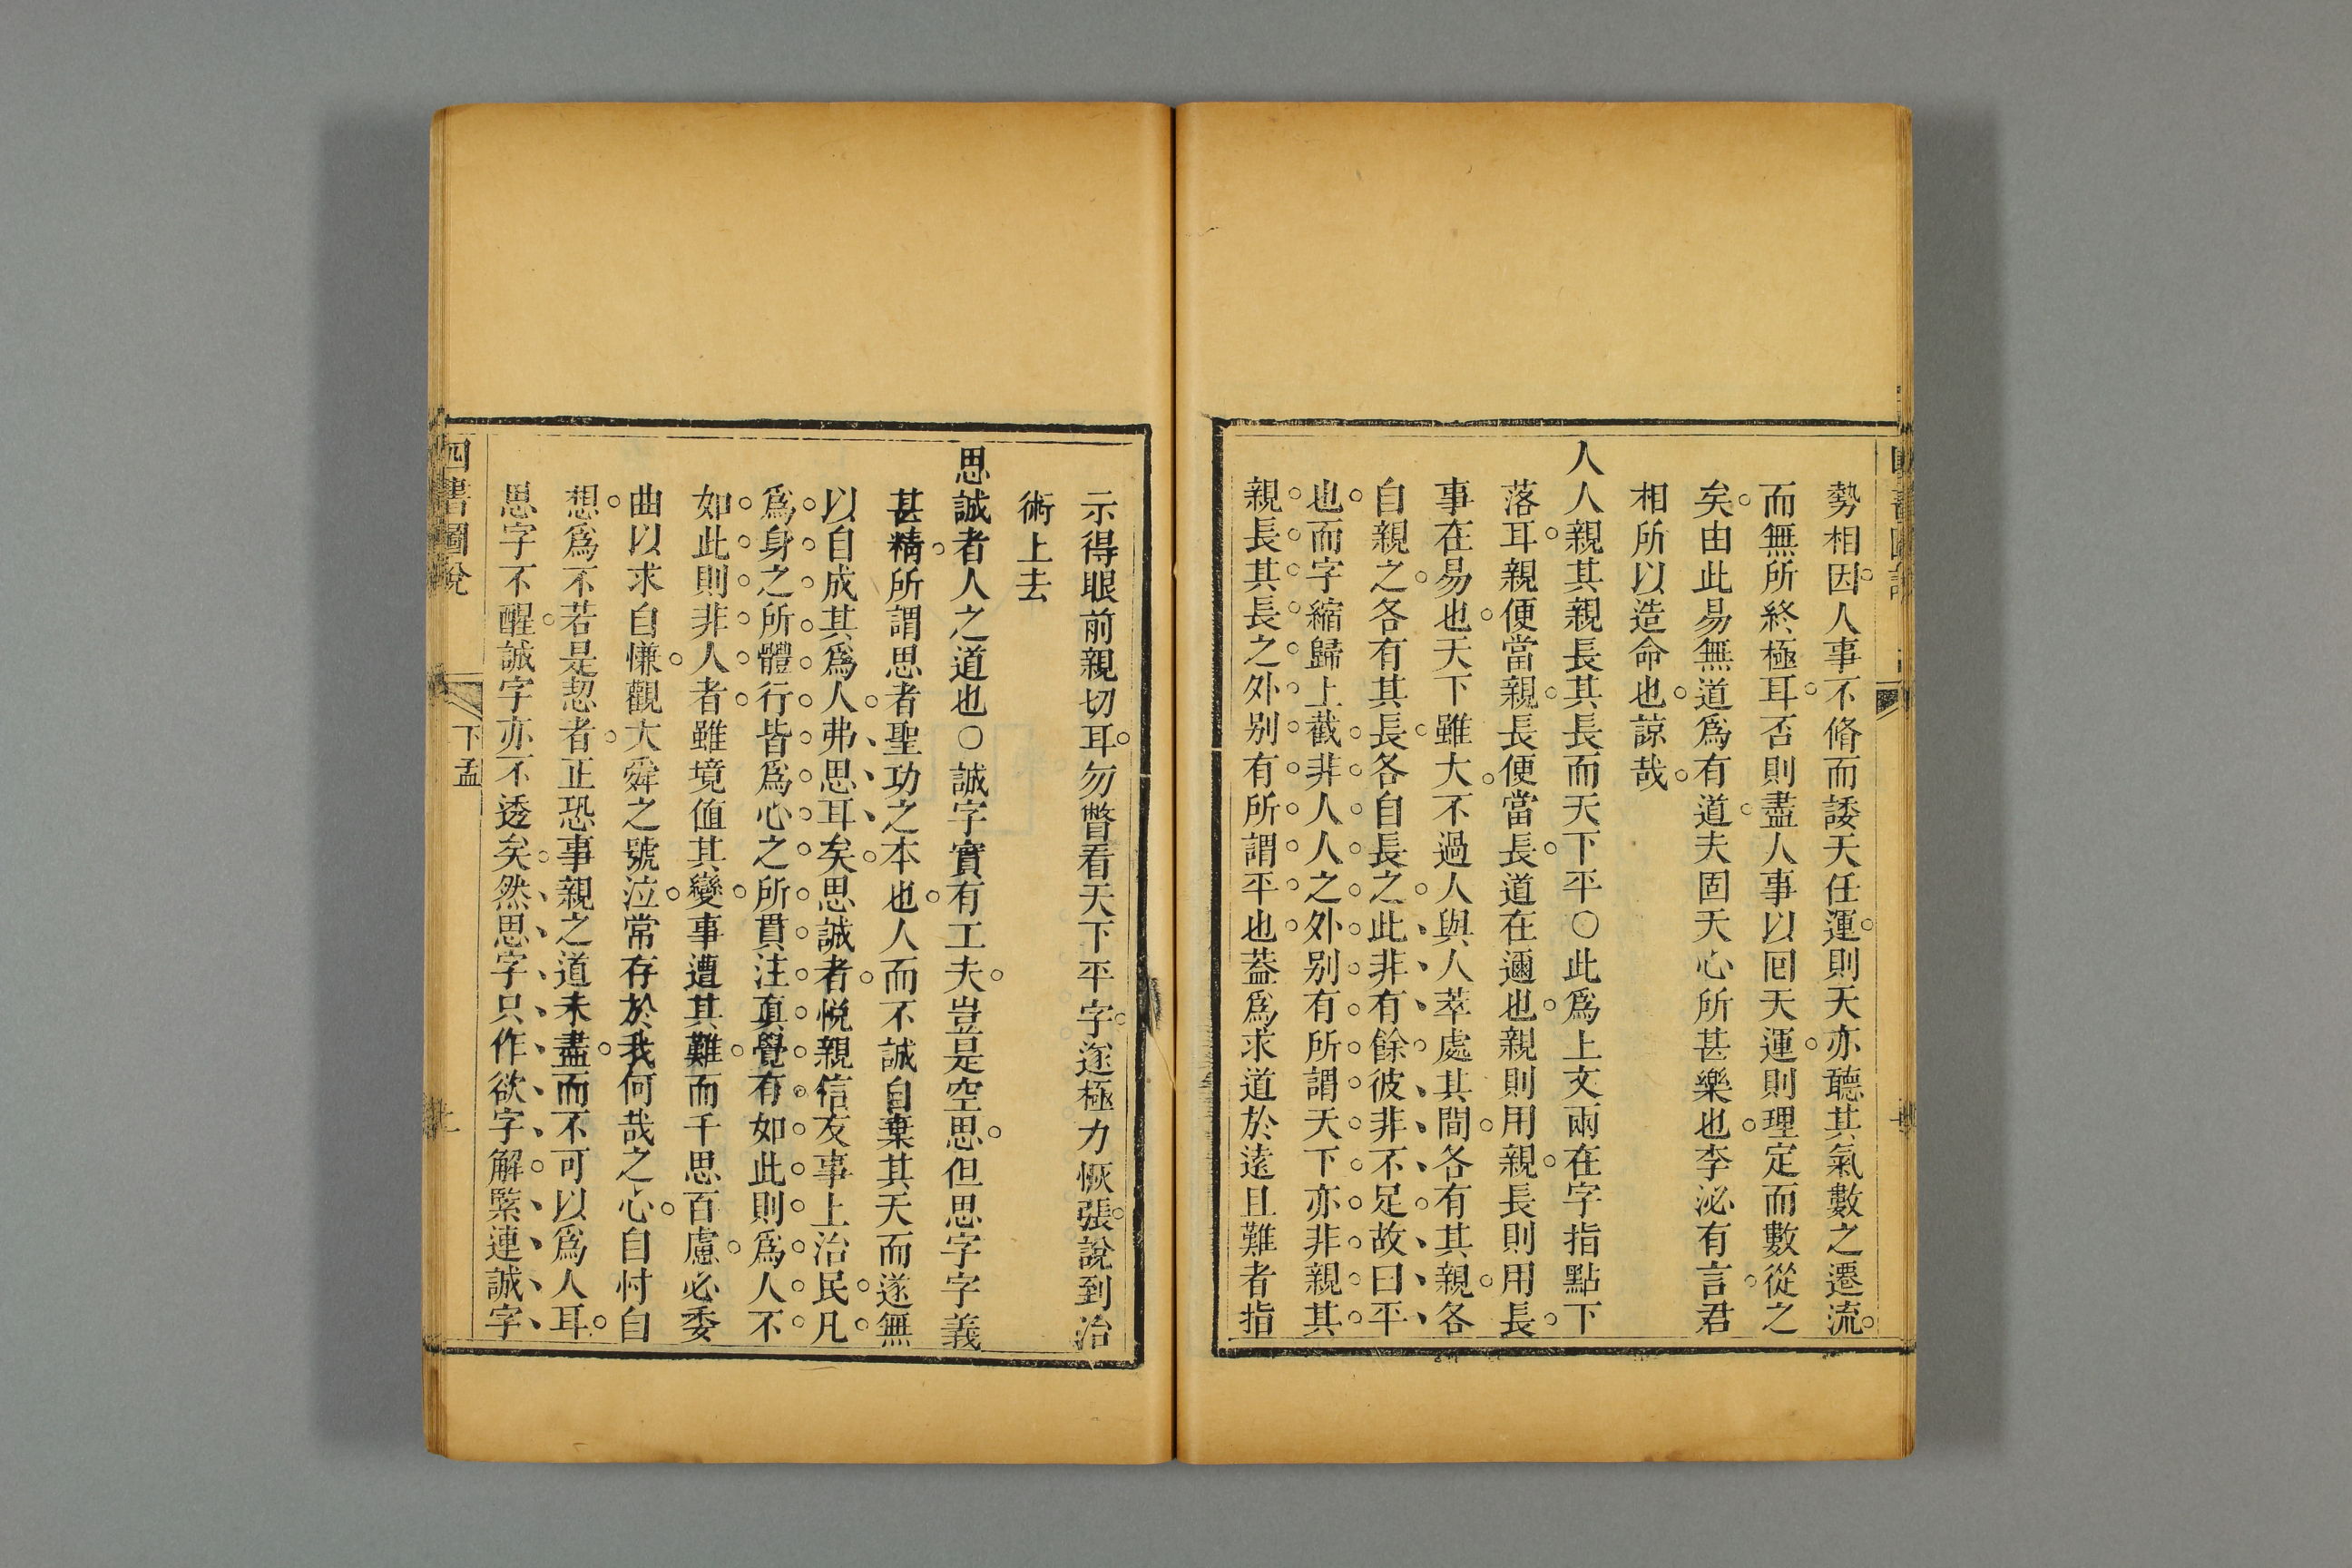 勢相因人事不脩而諉天任運則天亦聽其氣數之遷流
而無所終極耳否則盡人事以囘天運則理定而數從之
矣由此易無道爲有道夫固天心所甚樂也李泌有言君
相所以造命也諒哉
人人親其親長其長而天下平○此爲上文兩在字指點下
落耳親便當親長便當長道在邇也親則用親長則用長
事在易也天下雖大不過人與人萃處其間各有其親各
自親之各有其長各自長之此非有餘彼非不足故曰平
也而字縮歸上截非人人之外别有所謂天下亦非親其
親長其長之外别有所謂平也葢爲求道於遠且難者指
示得眼前親切耳勿瞥看天下平字遂極力恢張說到治
術上去
思誠者人之道也○誠字實有工夫豈是空思但思字字義
甚精所謂思者聖功之本也人而不誠自棄其天而遂無
以自成其爲人弗思耳矣思誠者悦親信友事上治民凡
爲身之所體行皆爲心之所貫注真覺有如此則爲人不
如此則非人者雖境值其變事遭其難而千思百慮必委
曲以求自慊觀大舜之號泣常存於我何哉之心自忖自
想爲不若是恝者正恐事親之道未盡而不可以爲人耳
思字不醒誠字亦不透矣然思字只作欲字解緊連誠字
四書圖說
下孟